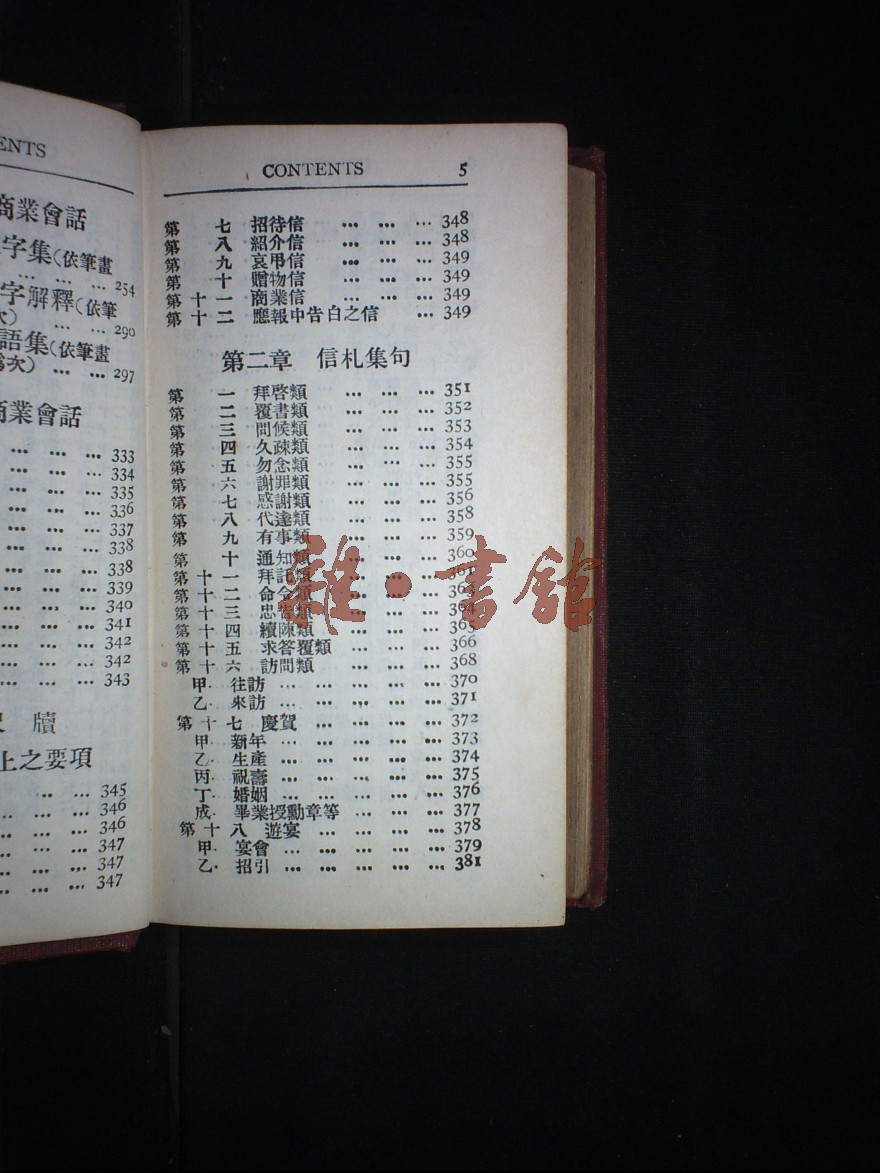 ENTS
商業會話
字集(依筆畫
... ... ... 254
字解釋(依筆
次) ... ... 290
語集(依筆畫
爲次) ... ... 297
商業會話
... ... ... 333
... ... ... 334
... ... ... 335
... ... ... 336
... ... ... 337
... ... ... 338
... ... ... 338
... ... ... 339
... ... ... 340
... ... ... 341
... ... ... 342
... ... ... 342
... ... ... 343
牘
上之要項
... ... ... 345
... ... ... 346
... ... ... 346
... ... ... 347
... ... ... 347
... ... ... 347
CONTENTS 5
第七 招待信 ... ... ... 348
第八 紹介信 ... ... ... 348
第九 哀弔信 ... ... ... 349
第十 贈物信 ... ... ... 349
第十一 商業信 ... ... ... 349
第十二 應報中告白之信 ... 349
第二章 信札集句
第一 拜啓類 ... ... ... 351
第二 覆書類 ... ... ... 352
第三 問候類 ... ... ... 353
第四 久疎類 ... ... ... 354
第五 勿念類 ... ... ... 355
第六 謝罪類 ... ... ... 355
第七 感謝類 ... ... ... 356
第八 代達類 ... ... ... 358
第九 有事類 ... ... ... 359
第十 通知類 ... ... ... 360
第十一 拜託類 ... ... ... 361
第十二 命令類 ... ... ... 363
第十三 忠告類 ... ... ... 364
第十四 續陳類 ... ... ... 365
第十五 求答覆類 ... ... ... 366
第十六 訪問類 ... ... ... 368
甲. 往訪 ... ... ... ... ... 370
乙. 來訪 ... ... ... ... ... 371
第十七 慶賀 ... ... ... ... 372
甲. 新年 ... ... ... ... ... 373
乙. 生產 ... ... ... ... ... 374
丙. 祝壽 ... ... ... ... ... 375
丁. 婚姻 ... ... ... ... ... 376
戍. 畢業授勳章等 ... ... ... 377
第十八 遊宴 ... ... ... ... 378
甲. 宴會 ... ... ... ... ... 379
乙. 招引 ... ... ... ... ... 381
雅·書館